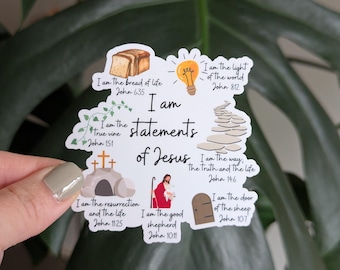 I am the bread of life
John 6:35
I am the light
of the world
John 8:12
I am
statements
of Jesus
I am the
true vine
John 15:1
I am the way,
the truth and the life
John 14:6
I am the resurrection
and the life
John 11:25
I am the good
shepherd
John 10:11
I am the door
of the sheep
John 10:7